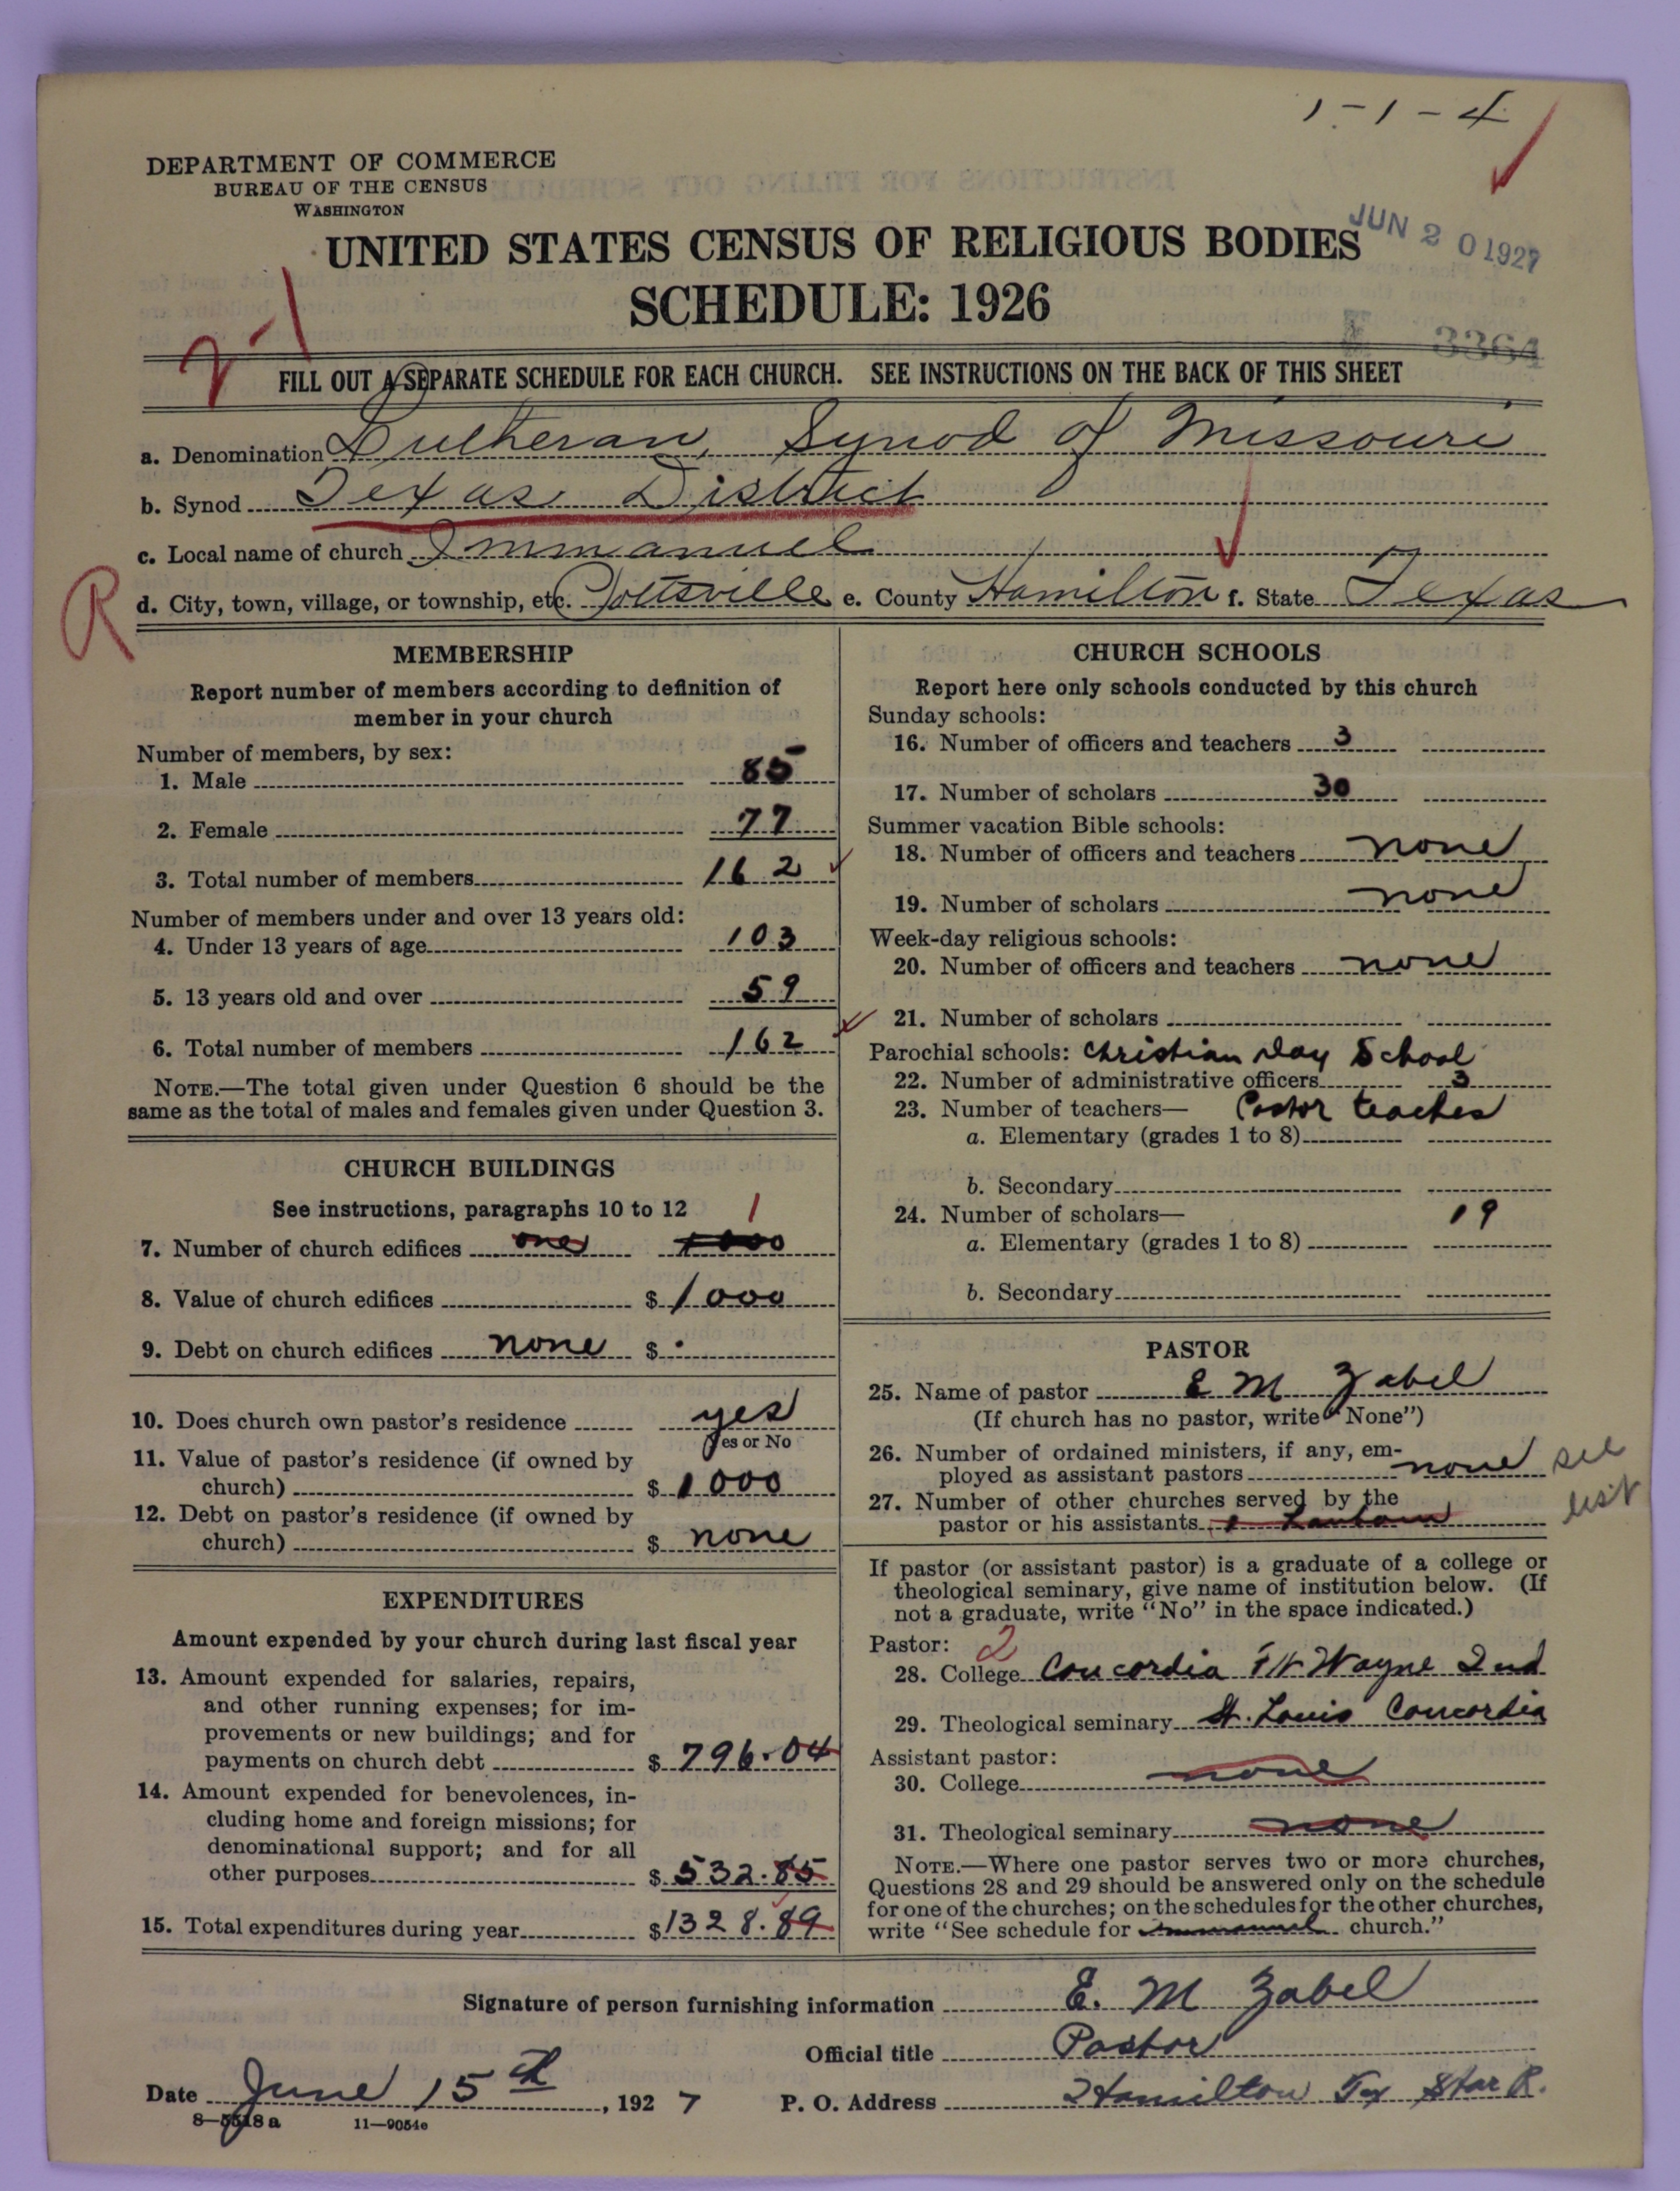 1-1-4
DEPARTMENT OF COMMERCE
BUREAU OF THE CENSUS
WASHINGTON
UNITED STATES CENSUS OF RELIGIOUS BODIES
JUN 20 1927
SCHEDULE: 1926
3364
FILL OUT A SEPARATE SCHEDULE FOR EACH CHURCH. SEE INSTRUCTIONS ON THE BACK OF THIS SHEET
a. Denomination Lutheran, Synod of Missouri
b. Synod Texas District
c. Local name of church Immanuel
R
d. City, town, village, or township, etc. Pottsville e. County Hamilton f. State Texas
MEMBERSHIP
Report number of members according to definition of
member in your church
Number of members, by sex:
1. Male 85
2. Female 77
3. Total number of members 162
Number of members under and over 13 years old:
4. Under 13 years of age 103
5. 13 years old and over 59
6. Total number of members 162
NOTE.—The total given under Question 6 should be the
same as the total of males and females given under Question 3.
CHURCH BUILDINGS
See instructions, paragraphs 10 to 12 1
7. Number of church edifices one 1000
8. Value of church edifices $ 1000
9. Debt on church edifices none $
10. Does church own pastor's residence yes
Yes or No
11. Value of pastor's residence (if owned by
church) $ 1000
12. Debt on pastor's residence (if owned by
church) $ none
EXPENDITURES
Amount expended by your church during last fiscal year
13. Amount expended for salaries, repairs,
and other running expenses; for im-
provements or new buildings; and for
payments on church debt $ 796.04
14. Amount expended for benevolences, in-
cluding home and foreign missions; for
denominational support; and for all
other purposes $ 532.85
15. Total expenditures during year $ 1328.89
CHURCH SCHOOLS
Report here only schools conducted by this church
Sunday schools:
16. Number of officers and teachers 3
17. Number of scholars 30
Summer vacation Bible schools:
18. Number of officers and teachers none
19. Number of scholars none
Week-day religious schools:
20. Number of officers and teachers none
21. Number of scholars
Parochial schools: Christian Day School
22. Number of administrative officers 3
23. Number of teachers— Pastor teaches
a. Elementary (grades 1 to 8)
b. Secondary
24. Number of scholars— 19
a. Elementary (grades 1 to 8)
b. Secondary
PASTOR
25. Name of pastor E M Zabel
(If church has no pastor, write "None")
26. Number of ordained ministers, if any, em-
ployed as assistant pastors none see
27. Number of other churches served by the list
pastor or his assistants
If pastor (or assistant pastor) is a graduate of a college or
theological seminary, give name of institution below. (If
not a graduate, write "No" in the space indicated.)
Pastor: 2
28. College Concordia Ft Wayne Ind
29. Theological seminary St. Louis Concordia
Assistant pastor:
30. College none
31. Theological seminary none
NOTE.—Where one pastor serves two or more churches,
Questions 28 and 29 should be answered only on the schedule
for one of the churches; on the schedules for the other churches,
write "See schedule for Immanuel church."
Signature of person furnishing information E. M Zabel
Official title Pastor
Date June 15th, 1927 P. O. Address Hamilton Tex Star R.
8—5518 a 11—9054e